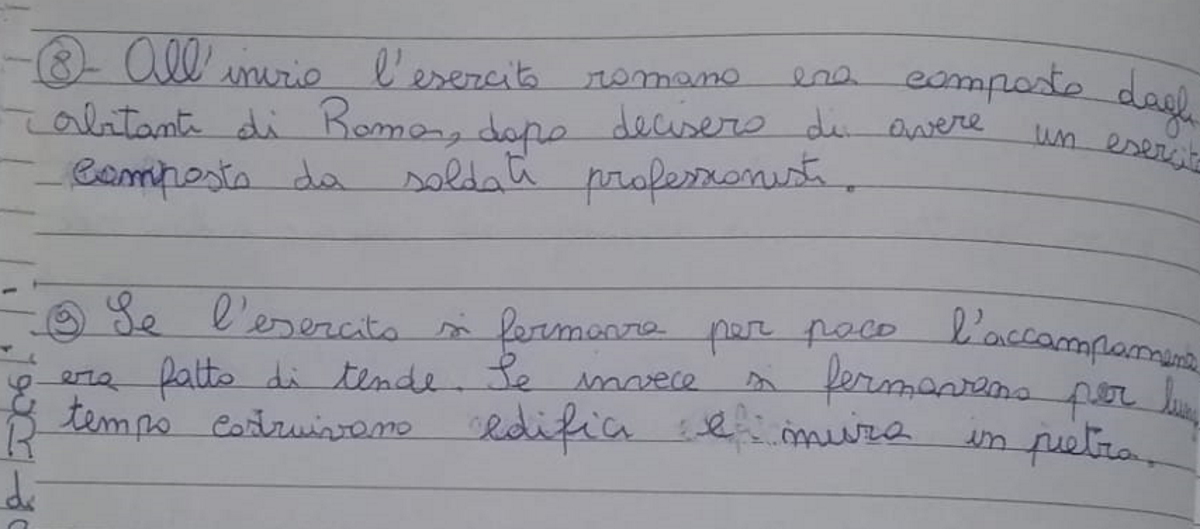 ⑧- All'inizio l'esercito romano era composto dagli
abitanti di Roma, dopo decisero di avere un esercito
composto da soldati professionisti.
⑨ Se l'esercito si fermava per poco l'accampamento
era fatto di tende. Se invece si fermavano per
tempo costruivano edifici e mura in pietra.
R
di